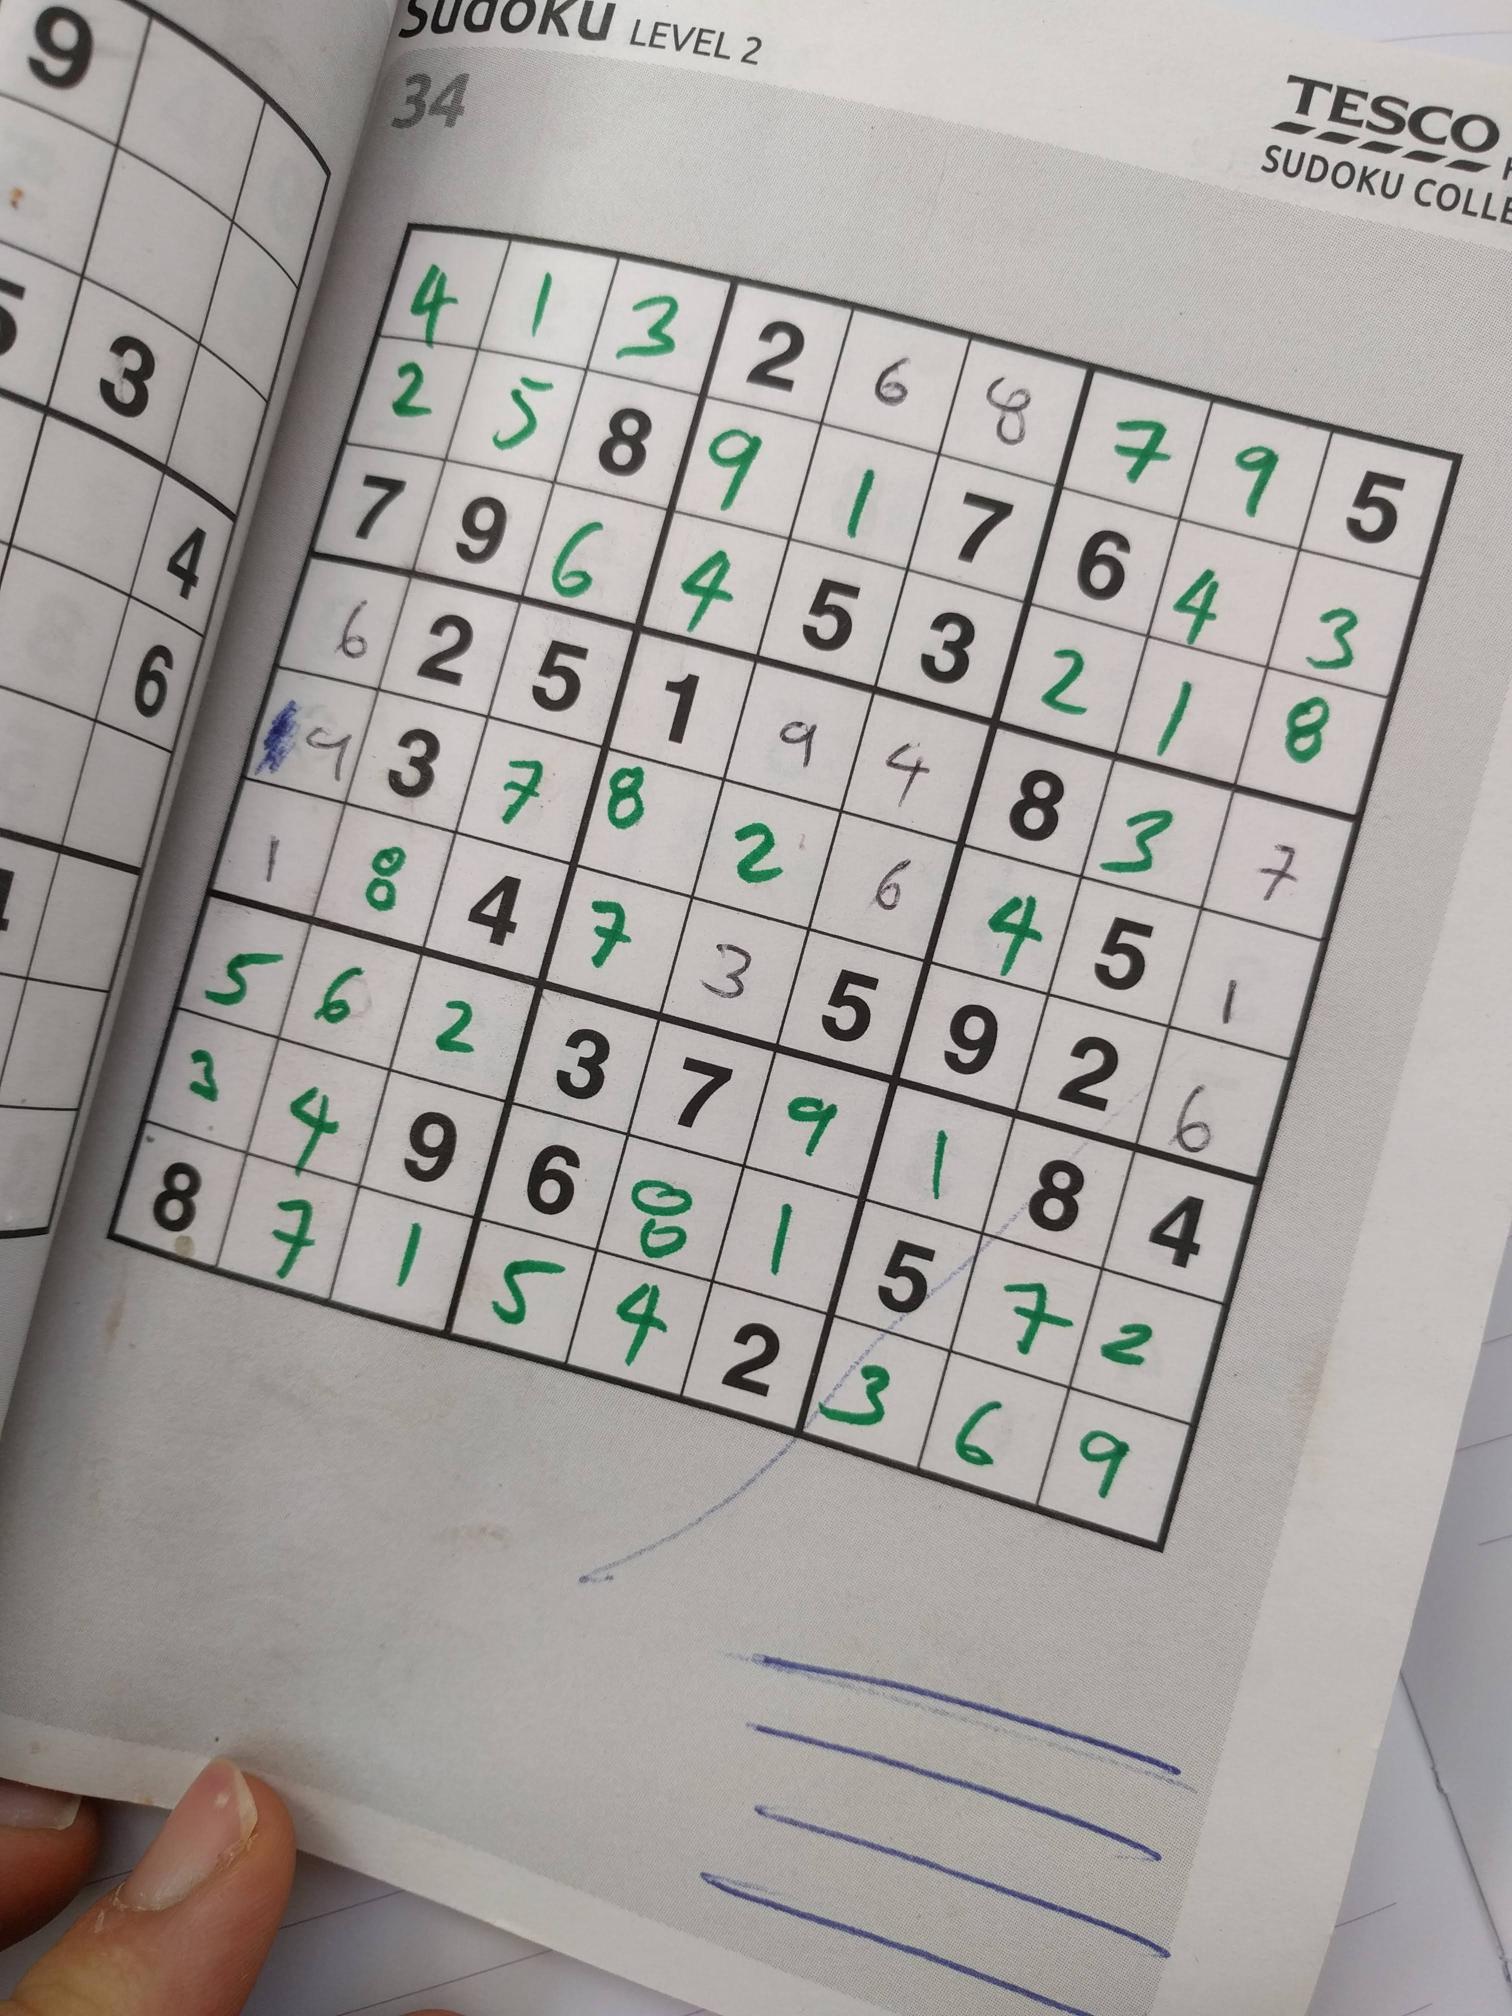 Sudoku LEVEL 2
TESCO
SUDOKU COLLE
34
4 1 3 2 6 8 7 9 5
2 5 8 9 1 7 6 4 3
7 9 6 4 5 3 2 1 8
6 2 5 1 9 4 8 3 7
9 3 7 8 2 6 4 5 1
1 8 4 7 3 5 9 2 6
5 6 2 3 7 9 1 8 4
3 4 9 6 8 1 5 7 2
8 7 1 5 4 2 3 6 9
9
5 3
4
6